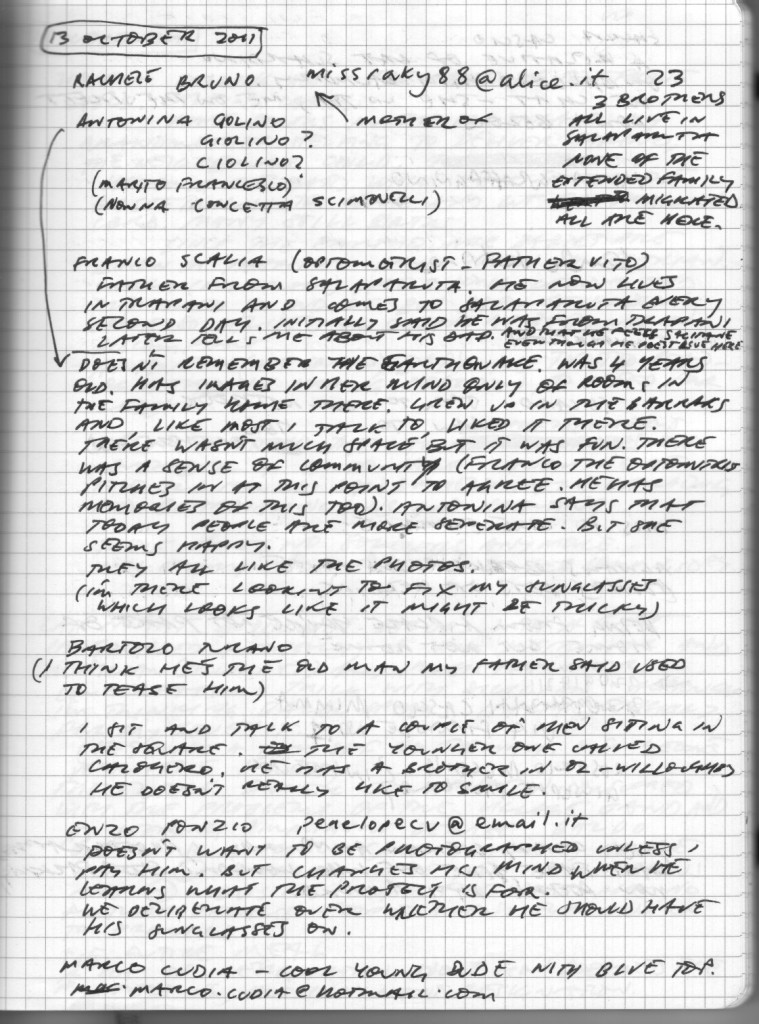 13 OCTOBER 2011
RACHELE BRUNO missraky88@alice.it 23
ANTONINA GOLINO MOTHER OF
GIOLINO?
CIOLINO?
(MARITO FRANCESCO)
(NONNA CONCETTA SCIMONELLI)
3 BROTHERS
ALL LIVE IN
SALAPARUTA
NONE OF THE
EXTENDED FAMILY
MIGRATED
ALL ARE HERE.
FRANCO SCALIA (OPTOMETRIST - FATHER VITO)
FATHER FROM SALAPARUTA. HE NOW LIVES
IN TRAPANI AND COMES TO SALAPARUTA EVERY
SECOND DAY. INITIALLY SAID HE WAS FROM TRAPANI
LATER TELLS ME ABOUT HIS DAD. AND THAT HE FEELS
EVEN THOUGH HE DOESN'T LIVE HERE
DOESN'T REMEMBER THE EARTHQUAKE. WAS 4 YEARS
OLD. HAS IMAGES IN HER MIND ONLY OF ROOMS IN
THE FAMILY HOME THERE. GREW UP IN THE BARRAKS
AND, LIKE MOST I TALK TO, LIKED IT THERE.
THERE WASN'T MUCH SPACE BUT IT WAS FUN. THERE
WAS A SENSE OF COMMUNITY (FRANCO THE OPTOMETRIST
PITCHES IN AT THIS POINT TO AGREE. HE HAS
MEMORIES OF THIS TOO). ANTONINA SAYS THAT
TODAY PEOPLE ARE MORE SEPERATE. BUT SHE
SEEMS HAPPY.
THEY ALL LIKE THE PHOTOS.
(I'M THERE LOOKING TO FIX MY SUNGLASSES
WHICH LOOKS LIKE IT MIGHT BE TRICKY)
BARTOLO
(I THINK HE'S THE OLD MAN MY FATHER SAID USED
TO TEASE HIM)
I SIT AND TALK TO A COUPLE OF MEN SITTING IN
THE SQUARE. THE YOUNGER ONE CALLED
CALOGERO. HE HAS A BROTHER IN OZ - WILLOUGHBY
HE DOESN'T REALLY LIKE TO SMILE.
ENZO PONZIO penelopecv@email.it
DOESN'T WANT TO BE PHOTOGRAPHED UNLESS I
PAY HIM. BUT CHANGES HIS MIND WHEN HE
LEARNS WHAT THE PROJECT IS FOR.
WE DELIBERATE OVER WHETHER HE SHOULD HAVE
HIS SUNGLASSES ON.
MARCO CUDIA - COOL YOUNG DUDE WITH BLUE TOP.
MARCO.CUDIA@HOTMAIL.COM